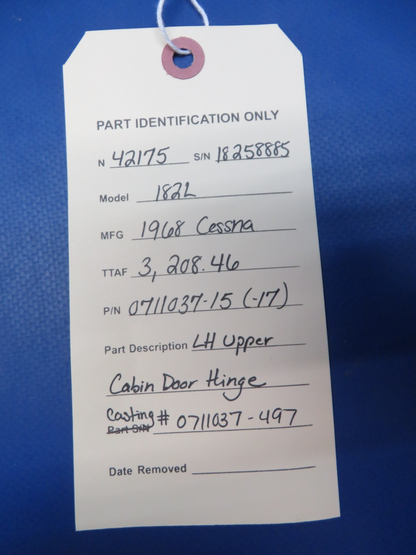 PART IDENTIFICATION ONLY
N 42175 S/N 18258885
Model 182L
MFG 1968 Cessna
TTAF 3,208.46
P/N 0711037-15 (-17)
Part Description LH Upper
Cabin Door Hinge
Casting # 0711037-497
Part S/N
Date Removed